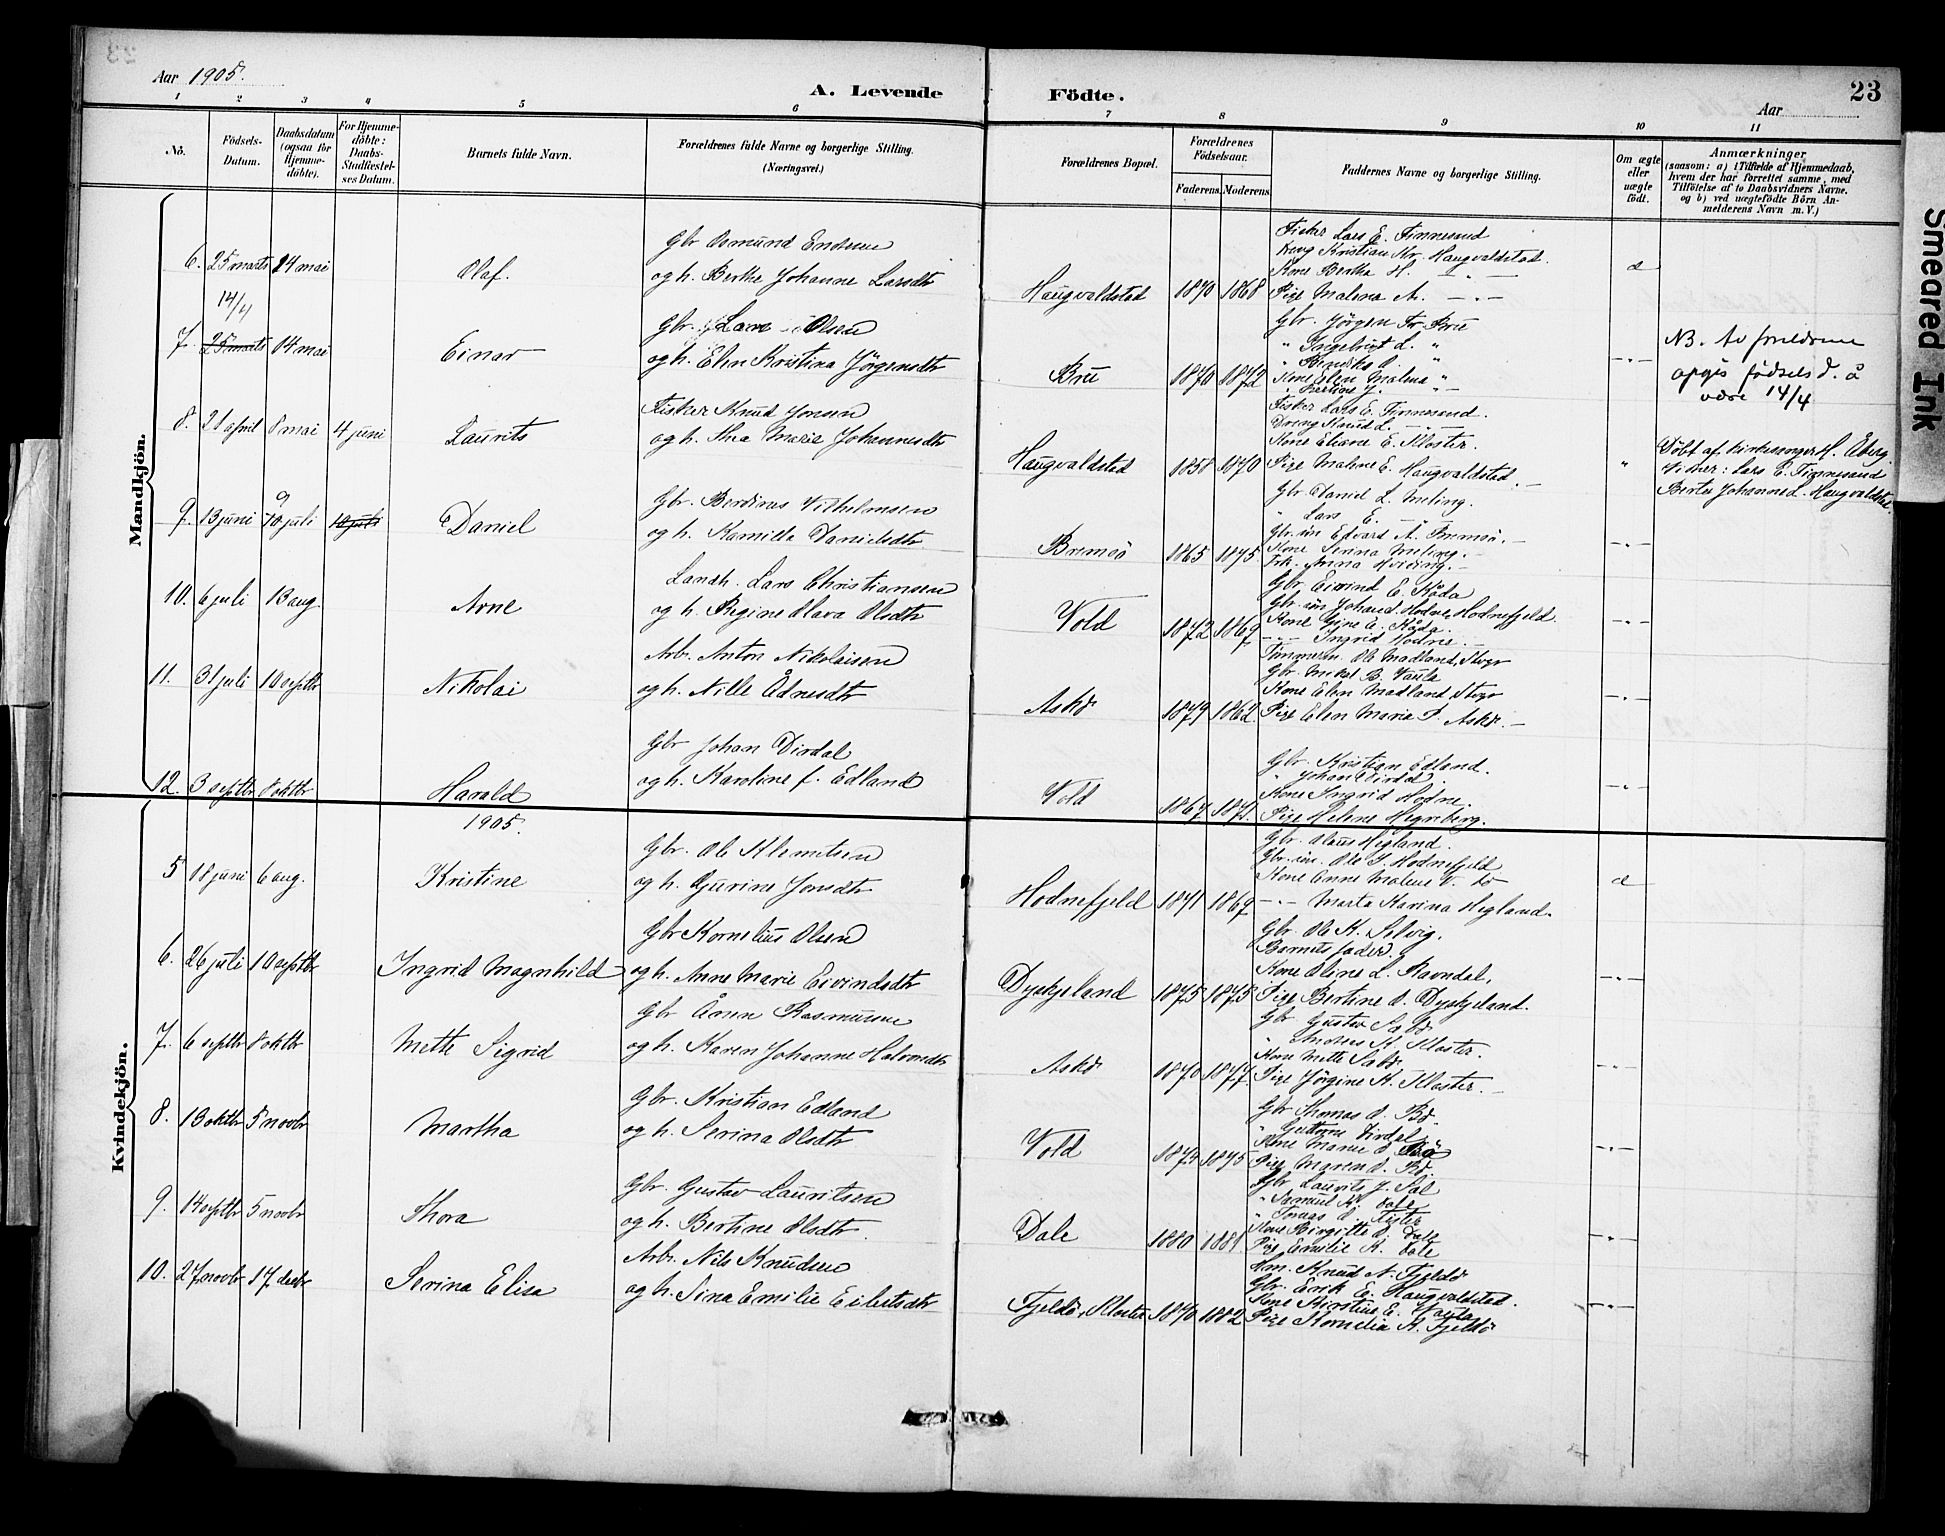 Aar 1905.
A. Levende Födte.
Aar
23
1 2 3 4 5 6 7 8 9 10 11
No.
Födsels-Datum.
Daabsdatum (ogsaa for Hjemmedöbte).
For Hjemmedöbte: Daabs-Stadfæstelses Datum.
Barnets fulde Navn.
Forældrenes fulde Navne og borgerlige Stilling. (Næringsvei.)
Forældrenes Bopæl.
Forældrenes Födselsaar.
Faderens. Moderens.
Faddernes Navne og borgerlige Stilling.
Om ægte eller uægte født.
Anmærkninger
(saasom: a) i Tilfælde af Hjemmedaab, hvem der har forrettet samme, med Tilföielse af to Daabsvidners Navne. og b) ved uægtefödte Börn Anmelderens Navn m. V.)
Mandkjön.
6. 25 marts 14 mai
Olaf.
Gbr Osmund Endresen
og h. Berthe Johanne Larsdtr
Haugvaldstad 1870 1868
Fisker Lars E. Finnesand
Dreng Kristian Kr. Haugvaldstad.
Kone Bertha H. — " —
Pige Malena A. — " —
æ
7. 14/4 25 marts 14 mai
Einar
Gbr. Lars Olsen
og h. Elen Kristina Jörgensdtr
Bru 1870 1872
Gbr. Jörgen Tr. Bru
" Ingebrigt L. "
" Bendiks O. "
Kone Elen Malena "
— " —
NB. Av foreldrene
opgis fødsels d. å
være 14/4
8. 21 april 8 mai 4 juni
Laurits
Fisker Knud Jonsen
og h. Ana Marie Johannesdtr
Haugvaldstad 1858 1870
Fisker Lars E. Finnesand.
Dreng Knud L. — " —
Kone Eliane E. Kloster.
Pige Malene E. Haugvaldstad.
"
Döbt af kirkesanger H. Åberg.
Vidner: Lars E. Finnesand
Berta Johanne L. Haugvaldstad
9. 13 juni 9 10 juli 10 juli
Daniel
Gbr. Berdines Vilhelmsen
og h. Kamilla Danielsdtr
Brimsö 1865 1875
Gbr. Daniel L. Meling.
" Lars E. —
Gbr. sön Edvart A. Brimsö.
Kone Serina Meling.
Frk. Anna Hviding.
— " —
10. 6 juli 13 aug.
Arne
Landh. Lars Christiansen
og h. Regine Olava Olsdtr
Vold 1872 1869
Gbr Eivind E. Råda
Gbr. sön Johan S. Hodne, Hodnefjeld.
Kone Gine E. Råda.
— " — Ingrid Hodne.
— " —
11. 31 juli 10 septbr
Nikolai
Arb. Anton Nikolaisen
og h. Nille Ådnesdtr
Askö 1879 1862
Tömmerm. Ole Madland, Stvgr
Gbr. Mikal B. Vaula
Kone Elen Madland, Stvgr
Pige Elen Marie P. Askö.
— " —
12. 3 septbr 8 oktbr
Harald
Gbr Johan Dirdal
og h. Karoline f. Edland
Vold 1867 1871.
Gbr. Kristian Edland.
" Johan Dirdal.
Kone Ingrid Hodne.
Pige Helene Hegreberg.
— " —
Kvindekjön.
1905.
5 18 juni 6 aug.
Kristine
Gbr. Ole Klemetsen
og h. Gjurine Jonsdtr
Hodnefjeld 1871 1869
Gbr. Olaus Hegland.
Gbr. sön. Ole S. Hodnefjeld
Kone Anne Malene V. do
— " — Marta Karina Hegland.
æ
6. 26 juli 10 septbr
Ingrid Magnhild
Gbr Kornelius Olsen
og h. Anne Marie Eivindsdtr
Dyskjeland 1875 1875
Gbr. Ole K. Selvig.
Barnets fader.
Kone Oline L. Ravndal.
Pige Bertine O. Dyskjeland.
— " —
7. 6 septbr 8 oktbr
Mette Sigrid
Gbr Åmun Rasmussen
og h. Karen Johanne Halvorsdtr
Askö 1870 1877
Gbr Gustav Sæbö
" Anders K. Kloster.
Kone Mette Sæbö.
Pige Jörgine K. Kloster.
— " —
8. 13 oktbr 5 novbr
Martha
Gbr. Kristian Edland
og h. Serina Olsdtr
Vold 1874 1875
Gbr Thomas O. Bö.
" Guttorm Dirdal
Kone Marie O. Bö
Pige Maren O. Bö.
— " —
9. 14 septbr 5 novbr
Thora
Gbr. Gustav Lauritsen
og h. Bertine Olsdtr.
Dale 1880 1881
Gbr Laurits J. Dal
" Samuel K. Dale
" Tomas O. Fister
Kone Birgitte O. Dale
Pige Emilie K. Dale
— " —
10. 27 novbr 17 decbr
Serina Elisa
Arb. Nils Knudsen
og h. Sina Emilie Eilertsdtr
Fjeldö, Kloster 1870 1882
Knud N. Fjeldö
Gbr. Erik E. Haugvaldstad.
Kone Kirstine E. Vaula
Pige Kornelia K. Fjeldö
— " —
Smeared Ink